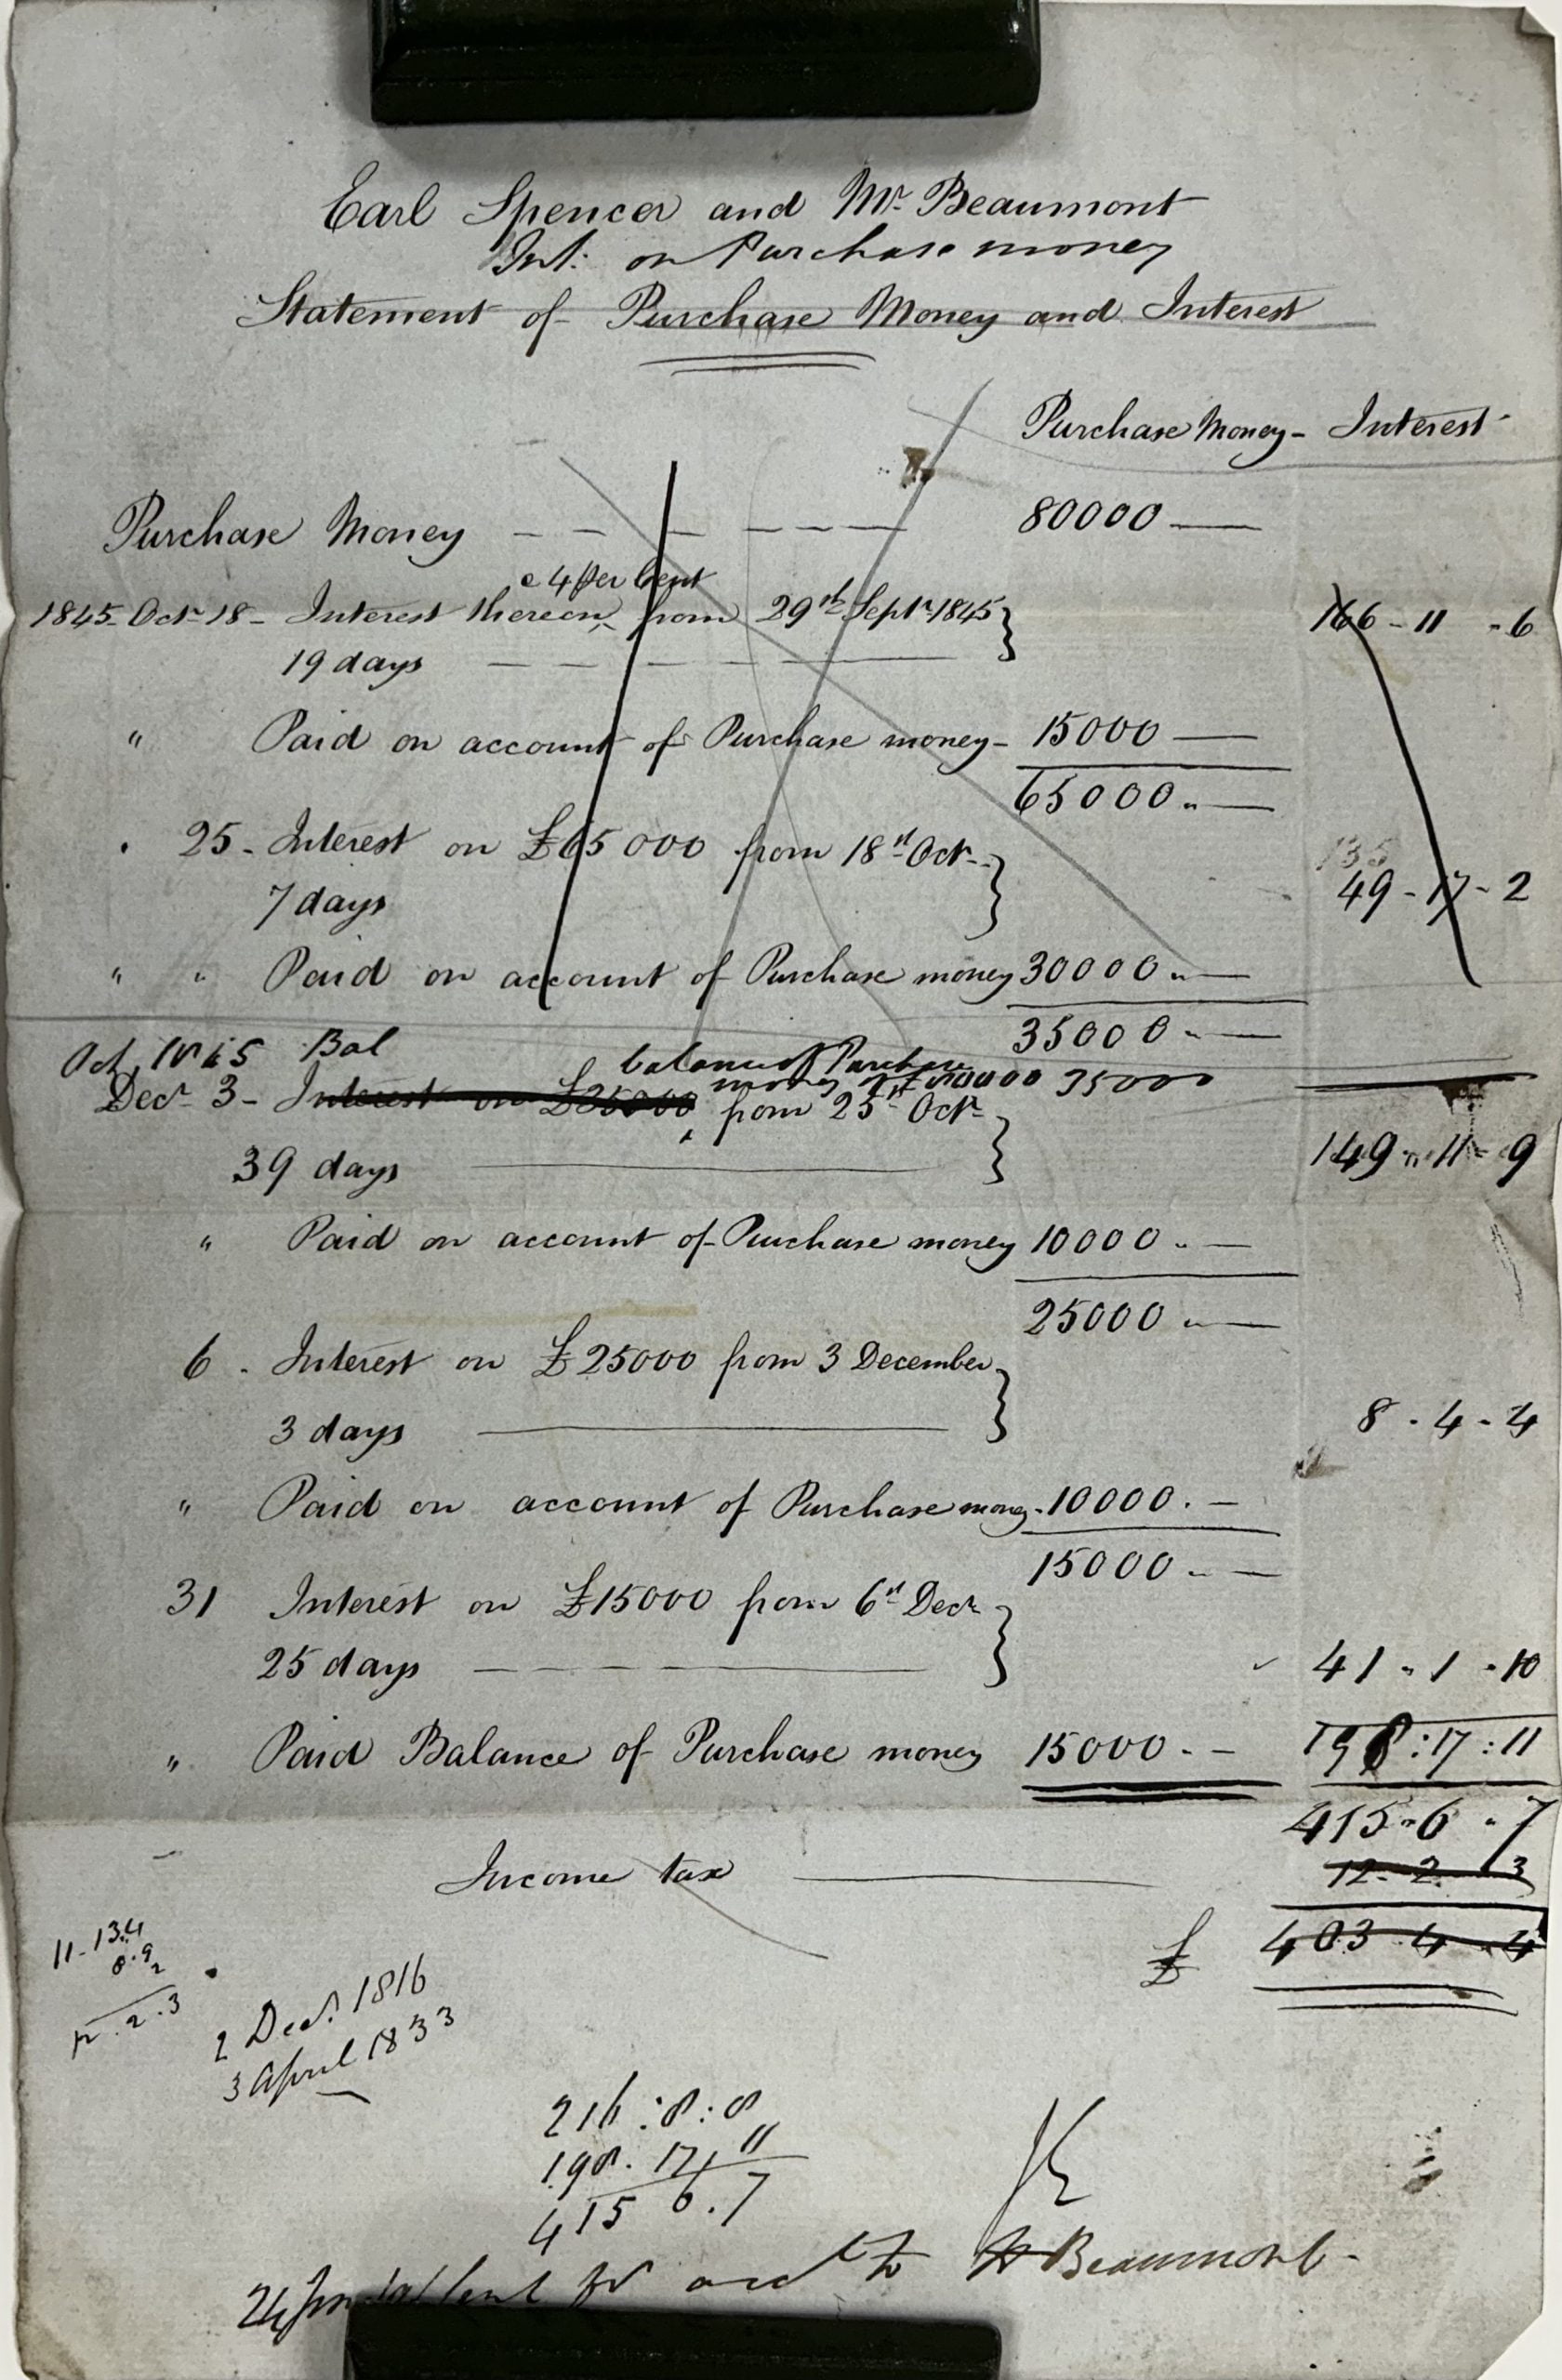 Earl Spencer and Mr. Beaumont
Int: on Purchase money
Statement of Purchase Money and Interest
Purchase Money - Interest
Purchase Money 80000
@ 4 Per Cent
1845 Octr 18 - Interest thereon from 29th Septr 1845 166 - 11 - 6
19 days
" Paid on account of Purchase money - 15000
65000 "
" 25 - Interest on £65000 from 18th Octr
135
7 days 49 - 17 - 2
" " Paid on account of Purchase money 30000 "
35000 "
Oct. 1845 Bal
balance of Purchase
money of £80000 35000
Decr 3 - Interest on £35000 from 25th Octr
39 days 149 " 11 - 9
" Paid on account of Purchase money 10000 "
25000 "
6 - Interest on £25000 from 3 December
3 days 8 - 4 - 4
" Paid on account of Purchase money - 10000 -
15000 "
31 Interest on £15000 from 6th Decr
25 days 41 " 1 " 10
" Paid Balance of Purchase money 15000 - 198 : 17 : 11
415 " 6 " 7
Income tax 12 - 2 3
£ 403 - 4 - 4
11 - 13.4
8.9
12 . 2 . 3
2 Decr. 1816
3 April 1833
216 : 8 : 8
198 . 17 . 11
415 6 . 7
to Beaumont -